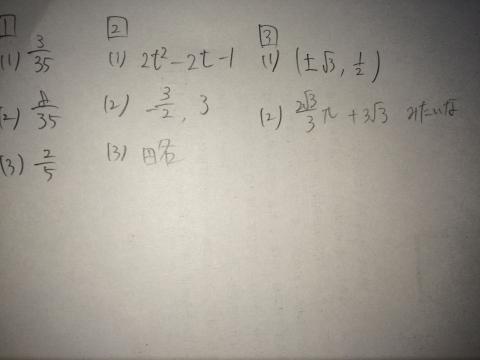 1
(1) 3/35
(2) /35
(3) 2/5
2
(1) 2t²-2t-1
(2) -3/2, 3
(3) 略
3
(1) (±√3, 1/2)
(2) 2√3/3 π + 3√3 みたいな